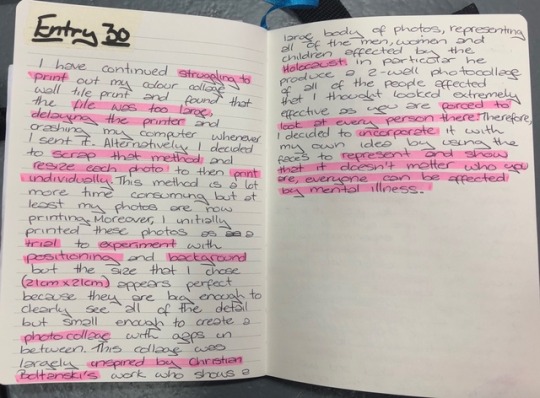 Entry 30
I have continued struggling to
print out my colour collage
wall tile print and found that
the file was too large,
delaying the printer and
crashing my computer whenever
I sent it. Alternatively I decided
to scrap that method and
resize each photo to then print
individually. This method is a lot
more time consuming but at
least my photos are now
printing. Moreover, I initially
printed these photos as a
trial to experiment with
positioning and background
but the size that I chose
(21cm x 21cm) appears perfect
because they are big enough to
clearly see all of the detail
but small enough to create a
photo collage with gaps in
between. This collage was
largely inspired by Christian
Boltanski's work who shows a
large body of photos, representing
all of the men, women and
children effected by the
Holocaust. In particular he
produce a 2-wall photocollage
of all of the people affected
that I thought looked extremely
effective as you are forced to
look at every person there. Therefore,
I decided to incorporate it with
my own idea by using the
faces to represent and show
that it doesn't matter who you
are, everyone can be affected
by mental illness.